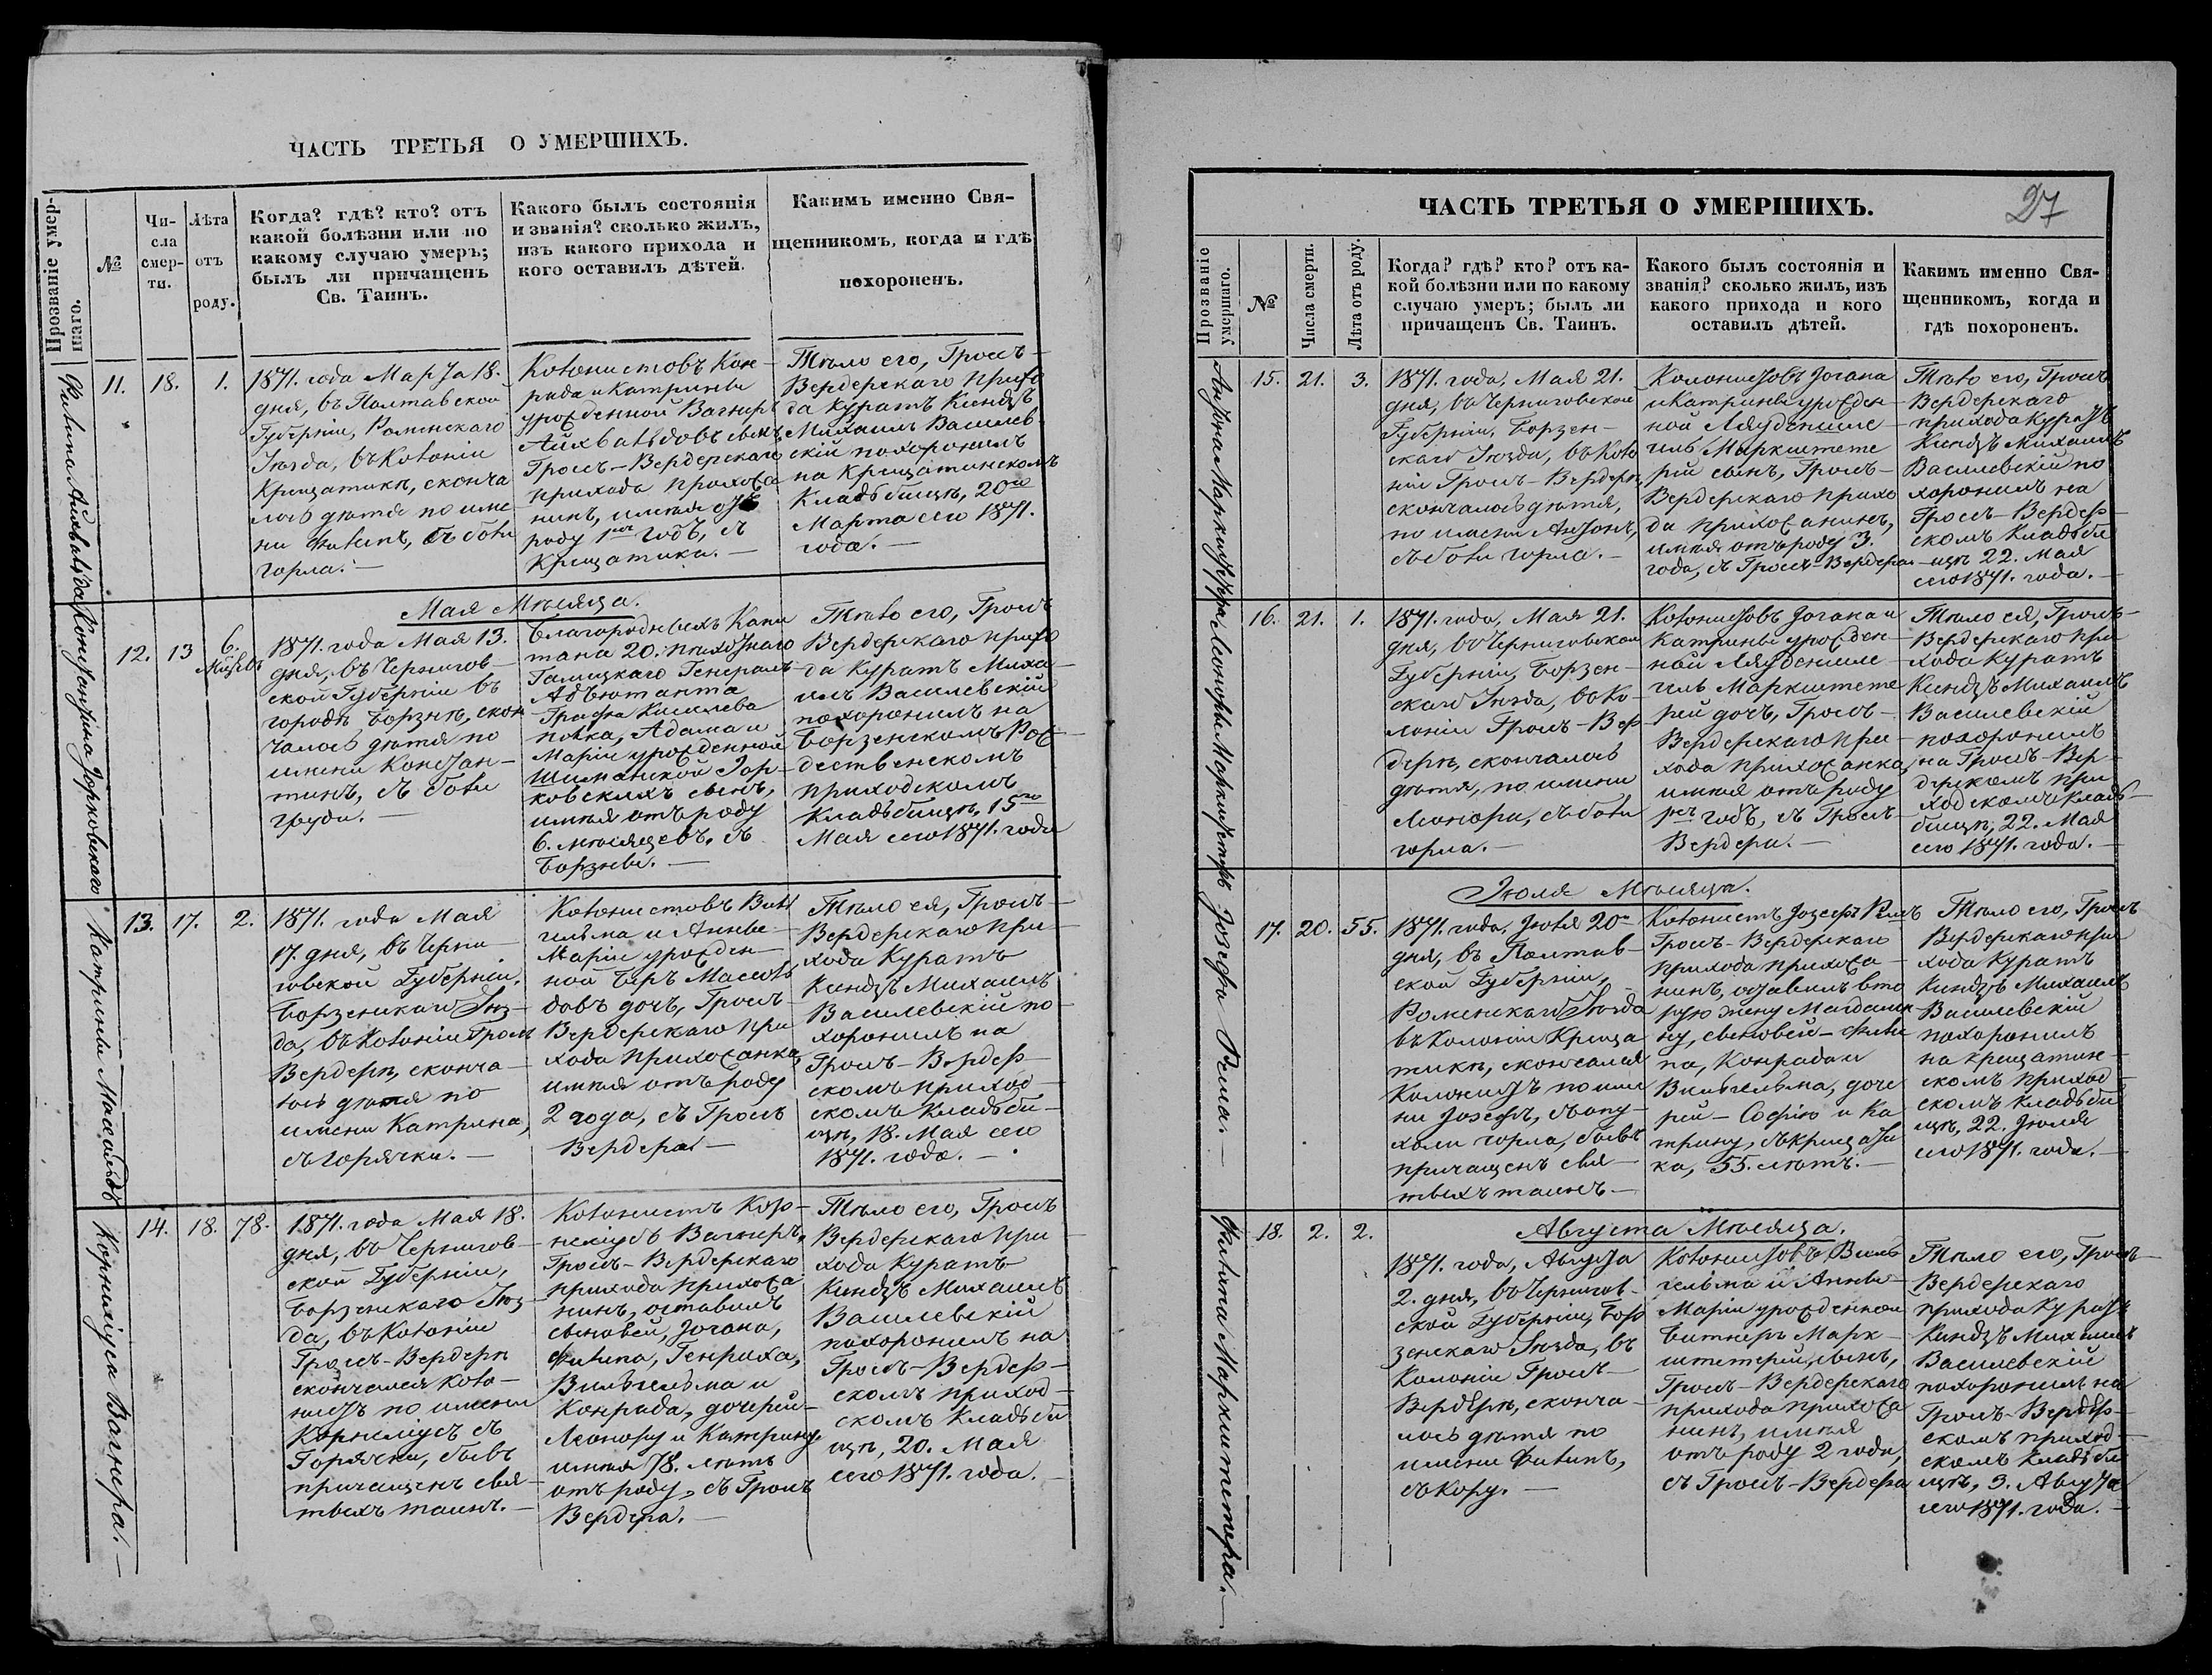 ЧАСТЬ ТРЕТЬЯ О УМЕРШИХЪ.
Прозваніе умер-
шаго.
№
Чи-
сла
смер-
ти.
Лѣта
отъ
роду.
Когда? гдѣ? кто? отъ
какой болѣзни или по
какому случаю умеръ;
былъ ли причащенъ
Св. Таинъ.
Какого былъ состоянія
и званія? сколько жилъ,
изъ какого прихода и
кого оставилъ дѣтей.
Какимъ именно Свя-
щенникомъ, когда и гдѣ
похороненъ.
Филипа Айхвальда
11.
18.
1.
1871. года Марта 18.
дня, въ Полтавской
Губерніи, Роменскаго
Уѣзда, въ Колоніи
Крещатикѣ, сконча
лось дитя по име
ни Филипъ, съ боли
горла. —
Колонистовъ Кон-
рада и Катрины
урожденной Вагнеръ
Айхвальдовъ сынъ
Гросъ-Вердерскаго
прихода прихожа
нинъ, имѣя отъ
роду 1 годъ, съ
Крещатика. —
Тѣло его, Гросъ-
Вердерскаго прихо
да Куратъ Ксіндзъ
Михаилъ Василев
скій похоронилъ
на Крещатинскомъ
Кладьбищѣ, 20го
Марта сего 1871.
года. —
Мая Мѣсяца.
Константина Горковскаго
12.
13
6.
Мѣсяц
1871. года Мая 13.
дня, въ Чернигов-
ской Губерніи въ
городѣ Борзнѣ, скон
чалось дитя по
имени Констан-
тинъ, съ боли
груди. —
Благородныхъ Капи
тана 20. пѣхотнаго
Галицкаго Генералъ-
Адъютанта
Графа Киселева
полка, Адама и
Маріи урожденной
Шиманской Гор-
ковскихъ сынъ,
имѣя отъ роду
6. мѣсяцевъ, съ
Борзны. —
Тѣло его, Гросъ
Вердерскаго прихо
да Куратъ Миха-
илъ Василевскій
похоронилъ на
Борзенскомъ Рож-
дественскомъ
приходскомъ
Кладьбищѣ, 15го
Мая сего 1871. года
Катрины
13.
17.
2.
1871. года Мая
17. дня, въ Черни-
говской Губерніи,
Борзенскаго Уѣз-
да, въ Колоніи Гросъ
Вердерѣ, сконча-
лось дитя по
имени Катрина,
съ горячки. —
Колонистовъ Виль
гельма и Анны-
Маріи урожден-
ной Беръ
довъ дочь, Гросъ-
Вердерскаго при
хода прихожанка,
имѣя отъ роду
2 года, съ Гросъ
Вердера —
Тѣло ея, Гросъ-
Вердерскаго при-
хода Куратъ
Ксіндзъ Михаилъ
Василевскій по-
хоронилъ на
Гросъ-Вердер-
скомъ приход-
скомъ Кладьби-
щѣ, 18. Мая сего
1871. года. —
Корнеліуса Вагнера. —
14.
18.
78.
1871. года Мая 18.
дня, въ Чернигов-
ской Губерніи,
Борзенскаго Уѣз-
да, въ Колоніи
Гросъ-Вердерѣ
скончался Коло-
нистъ по имени
Корнеліусъ съ
Горячки, бывъ
причащенъ свя-
тыхъ таинъ. —
Колонистъ Кор-
неліусъ Вагнеръ,
Гросъ-Вердерскаго
прихода прихожа
нинъ, оставилъ
сыновей, Іогана,
Филипа, Генриха,
Вильгельма и
Конрада, дочерей-
Леонору и Катрину
имѣя 78. лѣтъ
отъ роду, съ Гросъ
Вердера. —
Тѣло его, Гросъ
Вердерскаго при
хода Куратъ
Ксіндзъ Михаилъ
Василевскій
похоронилъ на
Гросъ-Вердер-
скомъ приход-
скомъ Кладьби
щѣ, 20. Мая
сего 1871. года. —
27
ЧАСТЬ ТРЕТЬЯ О УМЕРШИХЪ.
Прозваніе
умершаго.
№
Числа смерти.
Лѣта отъ роду.
Когда? гдѣ? кто? отъ ка-
кой болѣзни или по какому
случаю умеръ; былъ ли
причащенъ Св. Таинъ.
Какого былъ состоянія и
званія? сколько жилъ, изъ
какого прихода и кого
оставилъ дѣтей.
Какимъ именно Свя-
щенникомъ, когда и
гдѣ похороненъ.
Антона Маркштетера
15.
21.
3.
1871. года, Мая 21.
дня, въ Черниговской
Губерніи, Борзен-
скаго Уѣзда, въ Коло
ніи Гросъ-Вердерѣ
скончалось дитя,
по имени Антонъ,
съ боли горла. —
Колонистовъ Іогана
и Катрины урожден
ной Ляуденшле
гель Маркштете
рій сынъ, Гросъ-
Вердерскаго прихо
да прихожанинъ,
имѣя отъ роду 3.
года, съ Гросъ-Вердера
Тѣло его, Гросъ
Вердерскаго
прихода Куратъ
Ксіндзъ Михаилъ
Василевскій по
хоронилъ на
Гросъ-Вердер-
скомъ Кладьби
щѣ 22. Мая
сего 1871. года. —
Леоноры Маркштетеръ
16.
21.
1.
1871. года, Мая 21.
дня, въ Черниговской
Губерніи, Борзен-
скаго Уѣзда, въ Ко-
лоніи Гросъ-Вер-
дерѣ, скончалось
дитя, по имени
Леонора, съ боли
горла. —
Колонистовъ Іогана и
Катрины урожден-
ной Ляуденшле
гель Маркштете
рей дочь, Гросъ-
Вердерскаго при-
хода прихожанка,
имѣя отъ роду
годъ, съ Гросъ-
Вердера. —
Тѣло ея, Гросъ-
Вердерскаго при
хода Куратъ
Ксіндзъ Михаилъ
Василевскій
похоронилъ
на Гросъ-Вер-
дерскомъ при
ходскомъ Кладь-
бищѣ, 22. Мая
сего 1871. года. —
Іюля Мѣсяца.
Іозефа Релла. —
17.
20.
55.
1871. года, Іюля 20
дня, въ Полтав-
ской Губерніи,
Роменскаго Уѣзда
въ Колоніи Креща
тикѣ, скончался
Колонистъ по име
ни Іозефъ, съ опу-
холи горла, бывъ
причащенъ свя-
тыхъ таинъ. —
Колонистъ Іозефъ
Гросъ-Вердерскаго
прихода прихожа-
нинъ, оставилъ вто
рую жену Магдали
ну, сыновей-Фили
па, Конрада и
Вильгельма, доче
рей-Софію и Ка
трину, съ Крещати
ка, 55. лѣтъ. —
Тѣло его, Гросъ
Вердерскаго при
хода Куратъ
Ксіндзъ Михаилъ
Василевскій
похоронилъ
на Крещатин-
скомъ приход
скомъ Кладьби
щѣ, 22. Іюля
сего 1871. года. —
Августа Мѣсяца.
Филипа Маркштетера. —
18.
2.
2.
1871. года, Августа
2. дня, въ Чернигов-
ской Губерніи, Бор
зенскаго Уѣзда, въ
Колоніи Гросъ-
Вердерѣ, сконча-
лось дитя по
имени Филипъ,
съ Кору. —
Колонистовъ Виль
гельма и Анны-
Маріи урожденной
Битнеръ Марк-
штетерей, сынъ,
Гросъ-Вердерскаго
прихода прихожа
нинъ, имѣя
отъ роду 2 года,
съ Гросъ-Вердера
Тѣло его, Гросъ-
Вердерскаго
прихода Куратъ
Ксіндзъ Михаилъ
Василевскій
похоронилъ на
Гросъ-Вердер-
скомъ приход-
скомъ Кладьби
щѣ, 3. Августа
сего 1871. года. —